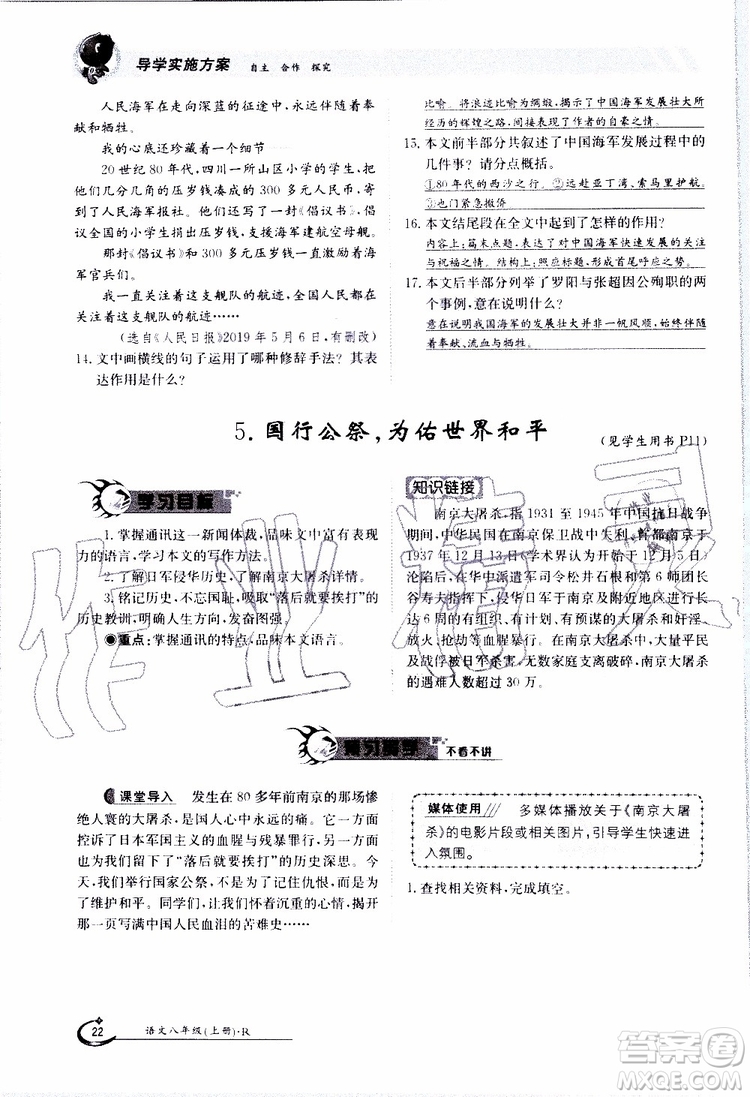 导学实施方案 自主 合作 探究
人民海军在走向深蓝的征途中，永远伴随着奉
献和牺牲。
我的心底还珍藏着一个细节——
20 世纪 80 年代，四川一所山区小学的学生，把
他们几分几角的压岁钱凑成的 300 多元人民币，寄
到人民海军报社。他们还写了一份《倡议书》，倡
议全国的小学生捐出压岁钱，支援海军建航空母舰。
那封《倡议书》和 300 多元压岁钱一直激励着海
军官兵们。
我一直关注着这支舰队的航迹，全国人民都在
关注着这支舰队的航迹……
（选自《人民日报》2019 年 5 月 6 日，有删改）
14. 文中画横线的句子运用了哪种修辞手法？其表
达作用是什么？
比喻。将浪迹比喻为绸缎，揭示了中国海军发展壮大所
经历的辉煌之路，体现了作者的自豪之情。
15. 本文前半部分共叙述了中国海军发展过程中的
几件事？请分点概括。
①80 年代的西沙之行。②远赴亚丁湾、索马里护航。
③也门紧急撤侨
16. 本文结尾段在全文中起到了怎样的作用？
内容上：篇末点题，表达了对中国海军快速发展的关注
与祝福之情。结构上：照应标题，形成首尾呼应之势。
17. 本文后半部分列举了罗阳与张超因公殉职的两
个事例，意在说明什么？
意在说明我国海军的发展壮大并非一帆风顺，始终伴随
着奉献、流血与牺牲。
5. 国行公祭，为佑世界和平
（见学生用书 P11）
学习目标
1. 掌握通讯这一新闻体裁，品味文中富有表现
力的语言，学习本文的写作方法。
2. 了解日军侵华历史，了解南京大屠杀详情。
3. 铭记历史，不忘国耻，吸取“落后就要挨打”的
历史教训，明确人生方向，发奋图强。
●重点：掌握通讯的特点，品味本文语言。
知识链接
南京大屠杀，指 1931 至 1945 年中国抗日战争
期间，中华民国在南京保卫战中失利、首都南京于
1937 年 12 月 13 日（学术界认为 12 月 5 日）
沦陷后，在华中派遣军司令松井石根和第 6 师团长
谷寿夫指挥下，侵华日军于南京及附近地区进行长
达 6 周的有组织、有计划、有预谋的大屠杀和奸淫、
放火、抢劫等血腥暴行。在南京大屠杀中，大量平民
及战俘被日军杀害，无数家庭支离破碎，南京大屠杀
的遇难人数超过 30 万。
预习导学 不看不讲
课堂导入 发生在 80 多年前南京的那场惨
绝人寰的大屠杀，是国人心中永远的痛。它一方面
控诉了日本军国主义的血腥与残暴罪行，另一方面
也为我们留下了“落后就要挨打”的历史深思。今
天，我们举行国家公祭，不是为了记住仇恨，而是为
了维护和平。同学们，让我们怀着沉重的心情，掀开
那一页写满中国人民血泪的苦难史……
媒体使用 多媒体播放关于《南京大屠
杀》的电影片段或相关图片，引导学生快速进
入氛围。
1. 查找相关资料，完成填空。
22 语文八年级（上册）·R
作业精灵
答案圈
MXQE.COM